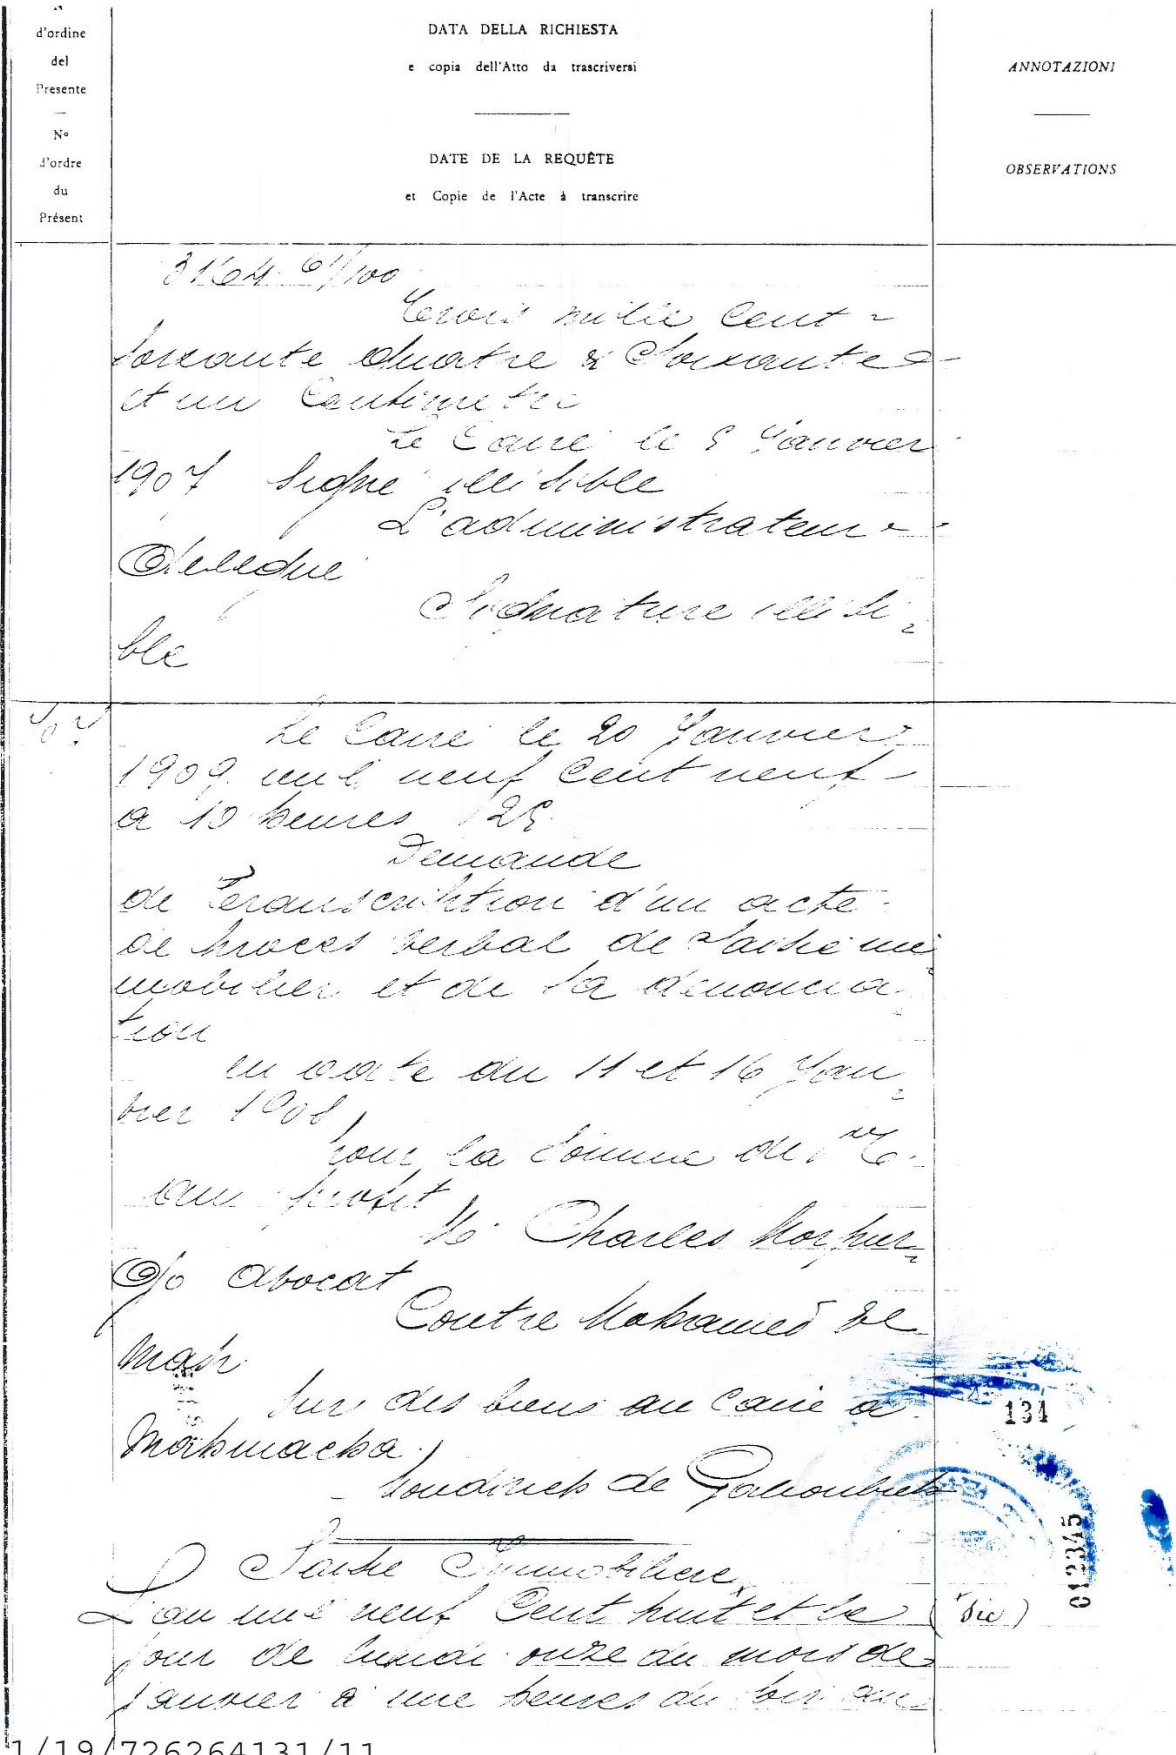 d'ordine
del
Presente
—
Nº
d'ordre
du
Présent
DATA DELLA RICHIESTA
e copia dell'Atto da trascriversi
DATE DE LA REQUÊTE
et Copie de l'Acte à transcrire
ANNOTAZIONI
OBSERVATIONS
3164 61/100
Trois mille Cent
soixante Quatre & Soixante
et un Centimetre
Le Caire le 5 Janvier
1907 Signé illisible
L'administrateur
Delegué
Signature illisi
ble
Le Caire le 20 Janvier
1909 mil neuf Cent neuf
a 10 heures 25
Demande
de Transcription d'un acte
de proces verbal de Saisie im
mobilier et de sa denoncia
tion
en date du 11 et 16 Jan
vier 1908
pour la somme de
au profit
Mr Charles
avocat
Contre Mohamed
Sur des biens au Caire a
Moudirieh de Galioubieh
Saisie Immobiliere
L'an mil neuf Cent huit et le (sic)
jour de lundi onze du mois de
janvier à une heures du soir au
134
012345
1/19/726264131/11